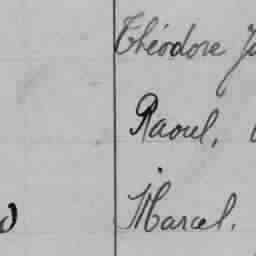 Théodore
Raoul,
Marcel.